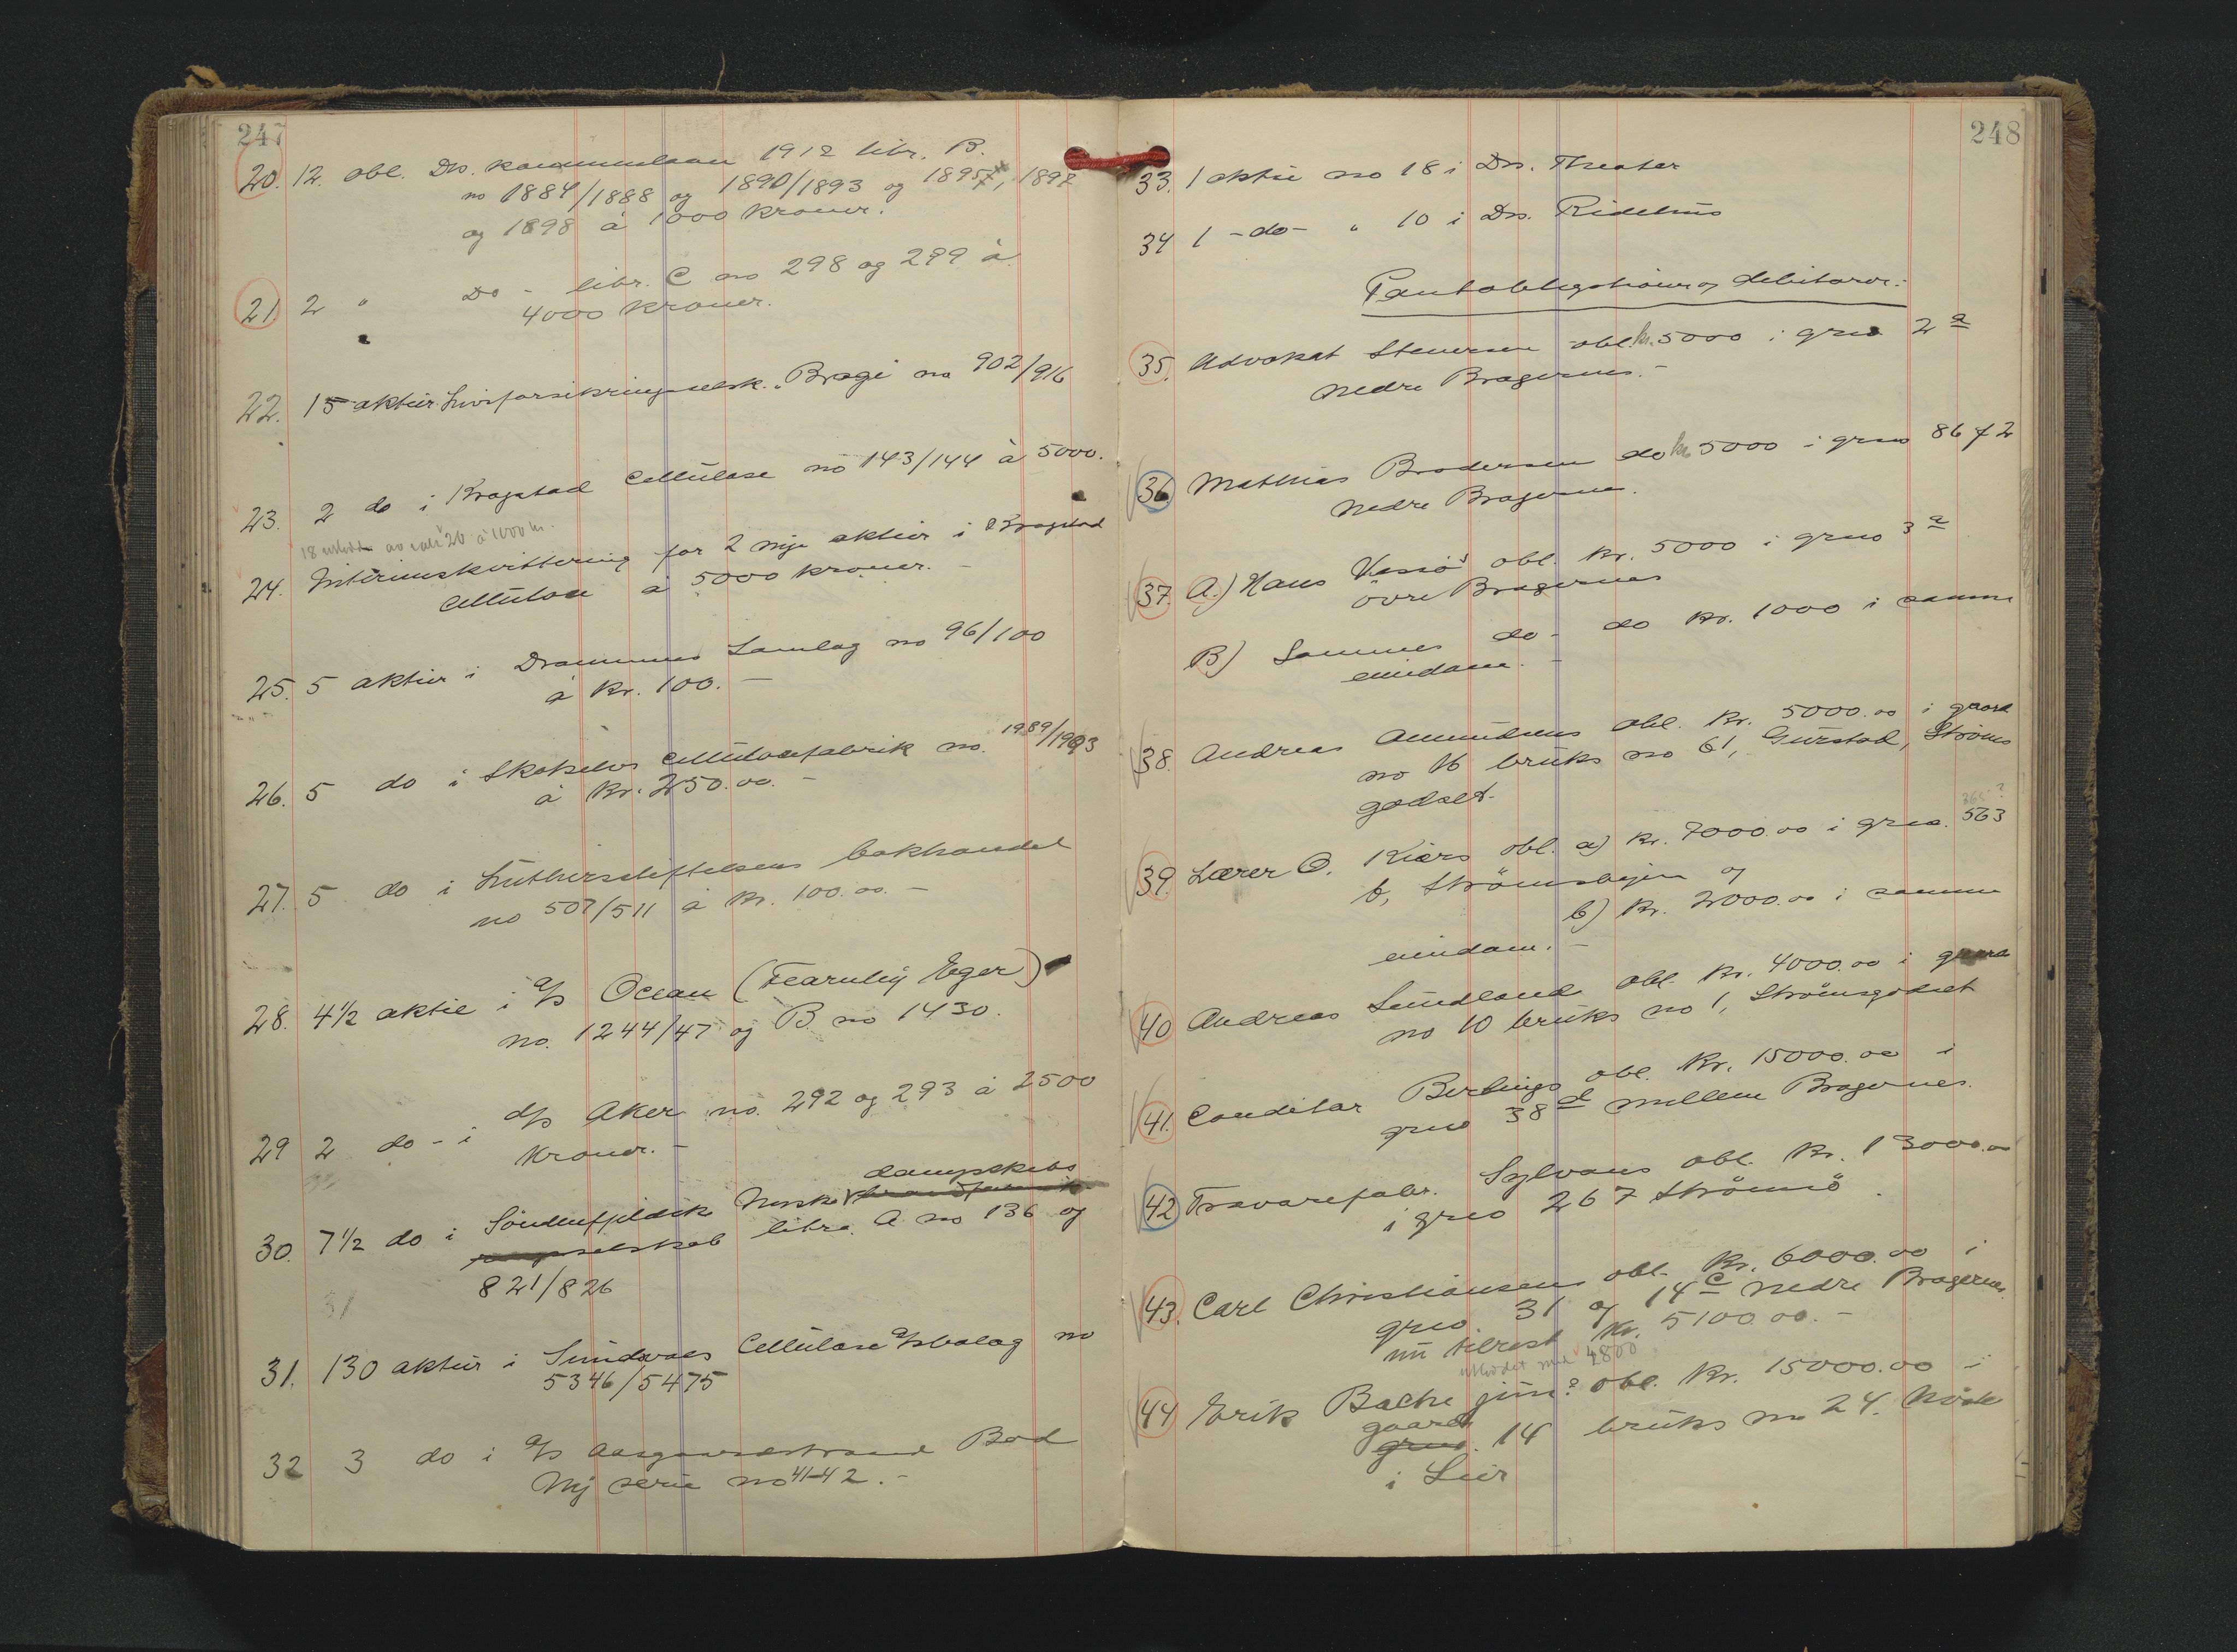 247
20. 12. obl. Drs. kommunelaan 1912 libr. B.
no 1884/1888 og 1890/1893 og 1895, 1897
og 1898 à 1000 kroner.
21. 2 " Do - libr. C no 298 og 299 à
4000 kroner.
22. 15 aktier Livsforsikringsselsk. "Bragi no 902/916
23. 2 do i Krogstad Cellulose no 143/144 à 5000.
18 av 20 à 1000 kr.
24. Interimskvittering for 2 nye aktier i Krogstad
Cellulose à 5000 kroner. -
25. 5 aktier i Drammens Samlag no 96/100
à kr. 100. -
26. 5 do i Skotselv Cellulosefabrik no. 1989/1993
à kr. 250.00. -
27. 5 do i Lutherstiftelsens bokhandel
no 507/511 à kr. 100.00. -
28. 4½ aktie i a/s Ocean (Fearnley Eger)
no. 1244/47 og B no 1430.
29 2 do - i d/s Aker no. 292 og 293 à 2500
kroner. -
30. 7½ do i Söndenfjeldsk Norske dampskibs
selskab litra. A no 136 og
821/826
31
31. 130 aktier i Sundsvaes Cellulose a/sbolag no
5346/5475
32 3 do i a/s Aasgaardstrand Bad
Ny serie no 41-42. -
248
33. 1 aktie no 18 i Drs. Theater
34 1 - do - " 10 i Drs. Ridehus
Pantobligationer og debitorer:
35. Advokat Stenersen obl. kr. 5000 i grno 2 a
Nedre Bragernes. -
36 Mathias Brodersen do kr 5000 i grno 86 f 2
Nedre Bragernes.
37. A.) Hans Vasiös obl. kr. 5000 i grno 3 a
övre Bragernes
B) Sammes do - do kr. 1000 i samme
eiendom. -
38. Andreas Amundsens obl. kr. 5000.00 i gaard
no 16 bruks no 61, Gulstad, Ströms
godset.
365 ?
39. Lærer O. Kiærs obl. a) kr. 7000.00 i grno. 563
b, Strömsbyen og
b) kr. 2000.00 i samme
eiendom. -
40 Andreas Sundland obl. kr. 4000.00 i gaard
no 10 bruks no 1, Strömsgodset
41. Conditor Berbings obl. kr. 15000.00 i
grno 38 d mellem Bragernes.
42 Travarefabr. Sylvans obl. kr. 13000.00
i grno 267 Strömsö.
43. Carl Christiansens obl. kr. 6000.00 i
grno 31 og 14 c Nedre Bragernes.
nu tilrest kr. 5100.00. -
utloddet med 4800
44 Erik Bache jun? obl. kr. 15000.00 i
gaard
grno. 14 bruks no 24.
i Lier